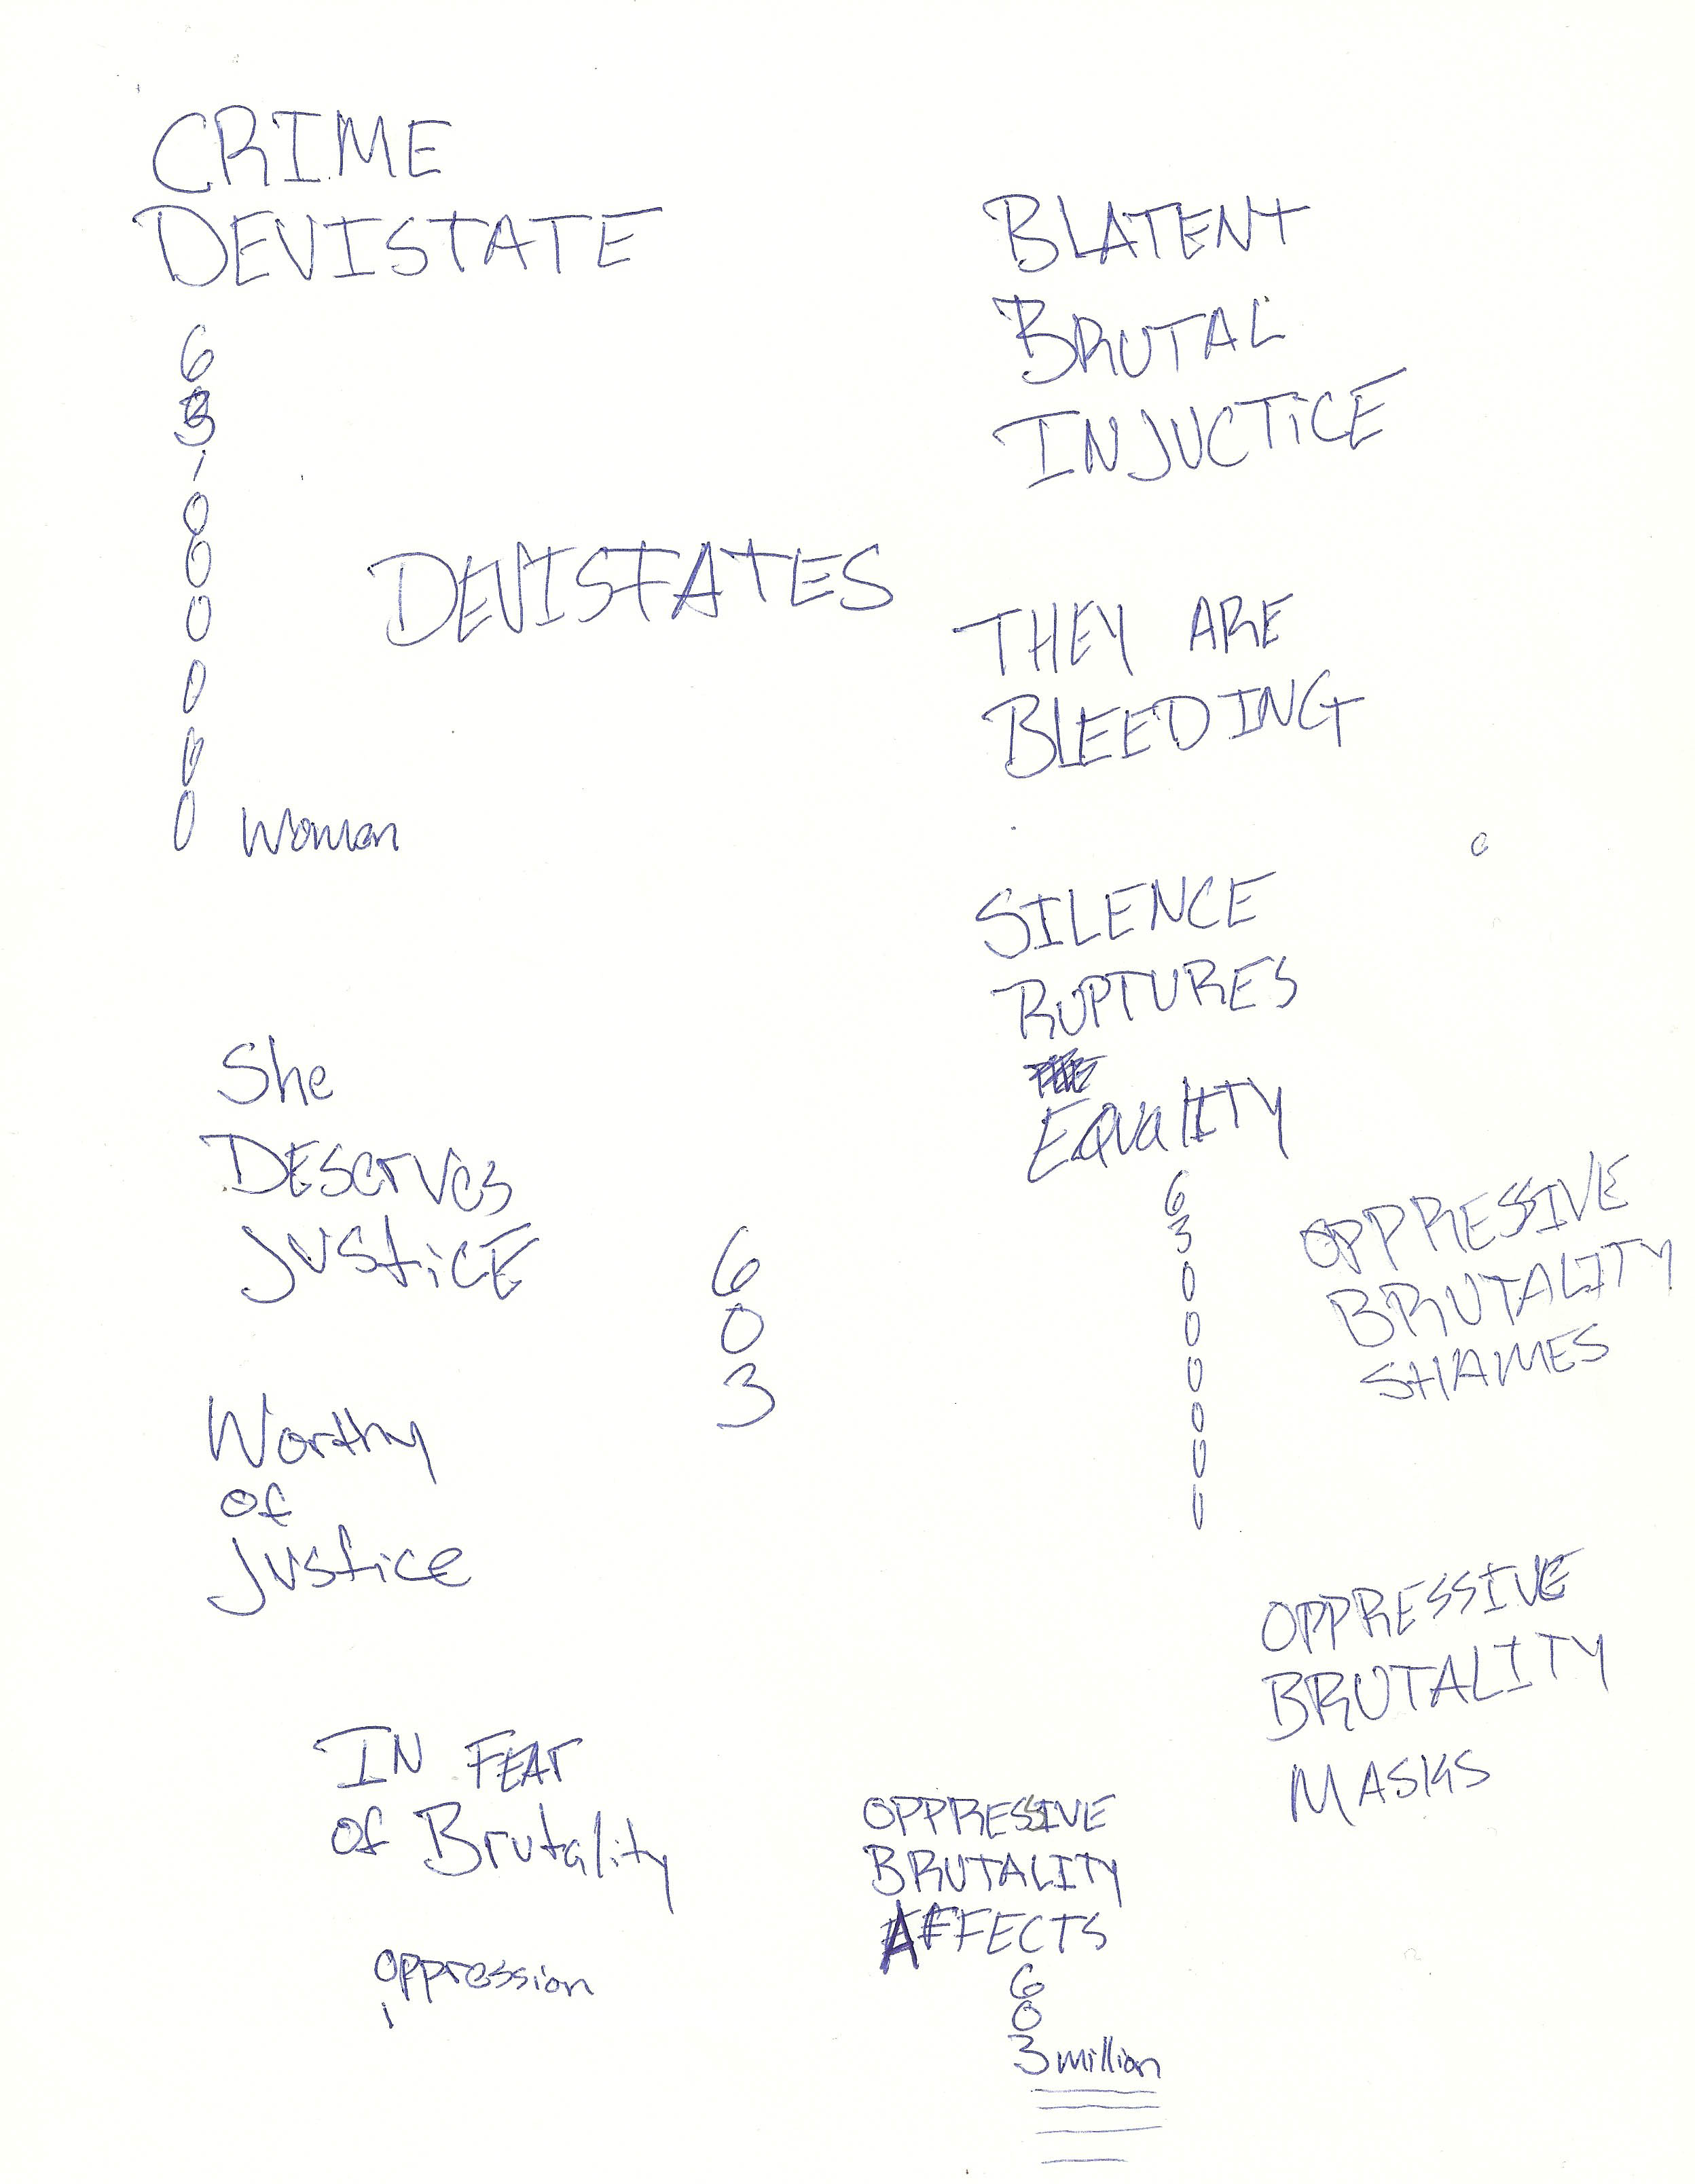 CRIME
DEVISTATE
6
3
,
0
0
0
0
0
0 Woman
DEVISTATES
She
DEserves
JUStiCE
6
0
3
Worthy
of
Justice
IN FEAr
of Brutality
oppression
BLATENt
BRUTAL
INJUCTiCE
THEY ARE
BLEEDING
SILENCE
RUPTURES
EQUalITY
6
3
0
0
0
0
0
0
OPPRESSIVE
BRUTALITY
SHAMES
OPPRESSIVE
BRUTALITY
MASKS
OPPRESSIVE
BRUTALITY
AFFECTS
6
0
3 million